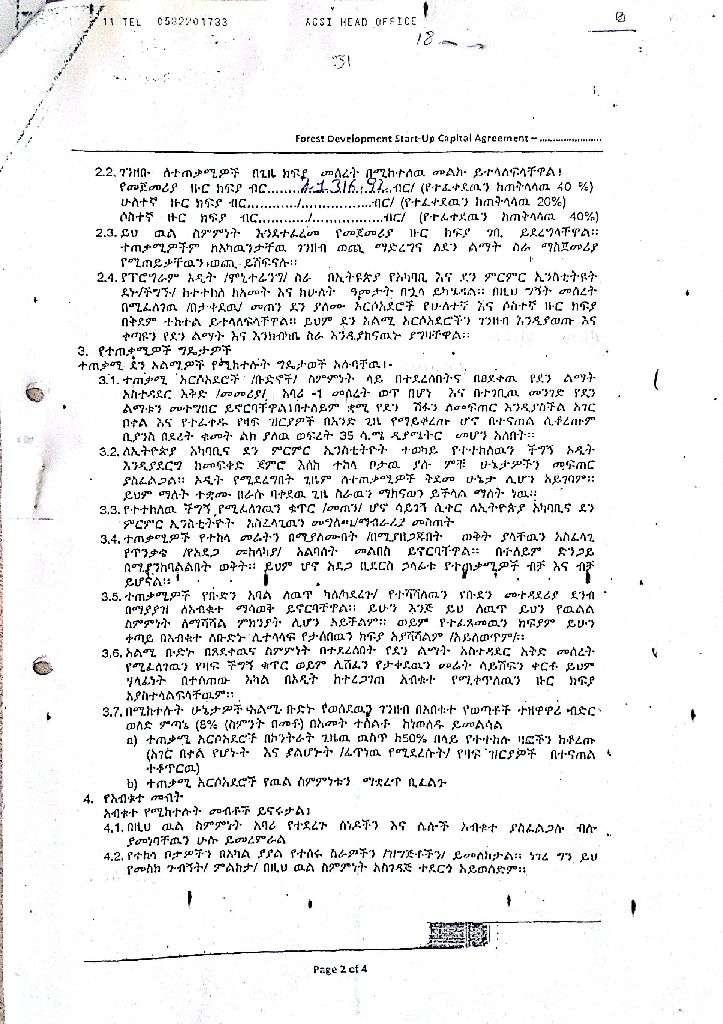 11 TEL 0582201733 ACSI HEAD OFFICE
18
31
Forest Development Start-Up Capital Agreement – ........................
2.2. ገንዘቡ ለተጠቃሚዎች በጊዜ ክፍያ መሰረት በሚከተለዉ መልኩ ይተላለፍላቸዋል፤
የመጀመሪያ ዙር ክፍያ ብር.......... ብር/ (የተፈቀደዉን ከጠቅላላዉ 40 %)
ሁለተኛ ዙር ክፍያ ብር............/..................ብር/ (የተፈቀደዉን ከጠቅላላዉ 20%)
ሶስተኛ ዙር ክፍያ ብር............/..................ብር/ (የተፈቀደዉን ከጠቅላላዉ 40%)
2.3. ይህ ዉል ስምምነት እንደተፈረመ የመጀመሪያ ዙር ክፍያ ገቢ ይደረግላቸዋል።
ተጠቃሚዎችም ከአካዉንታቸዉ ገንዘብ ወጪ ማድረግና ለደን ልማት ስራ ማስጀመሪያ
የሚጠይቃቸዉን ወጪ ይሸፍናሉ።
2.4. የፕሮግራም ኦዲት /ሞኒተሪንግ/ ስራ በኢትዩጵያ የአካባቢ እና ደን ምርምር ኢንስቲትዩት
ደኑ/ችግኙ/ ከተተከለ ከአመት እና ከሁለት ዓመታት በኋላ ይካሄዳል። በዚህ ግኝት መሰረት
በሚፈለገዉ /በታቀደዉ/ መጠን ደን ያለሙ አርሶአደሮች የሁለተኛ እና ሶስተኛ ዙር ክፍያ
በቅደም ተከተል ይተላለፍላቸዋል። ይህም ደን አልሚ አርሶአደሮችን ገንዘብ እንዲያወጡ እና
ቀጣዩን የደን ልማት እና እንክብካቤ ስራ እንዲያከናዉኑ ያግዛቸዋል።
3. የተጠቃሚዎች ግዴታዎች
ተጠቃሚ ደን አልሚዎች የሚከተሉት ግዴታወች አሉባቸዉ፡-
3.1. ተጠቃሚ አርሶአደሮች /ቡድኖች/ ስምምነት ላይ በተደረሰበትና በፀደቀዉ የደን ልማት
አስተዳደር እቅድ /መመሪያ/ አባሪ -1 መሰረት ወጥ በሆነ እና በተገቢዉ መንገድ የደን
ልማቱን መተግበር ይኖርባቸዋል፤በተለይም ቋሚ የደን ሽፋን ለመፍጠር እንዲያስችል አገር
በቀል እና የተፈቀዱ የዛፍ ዝርያዎች በአንድ ጊዜ የማይቆረጡ ሆኖ በተናጠል ሲቆረጡም
ቢያንስ በደረት ቁመት ልክ ያለዉ ወፍረት 35 ሴ.ሜ ዲያሜትር መሆን አለበት።
3.2. ለኢትዮጵያ አካባቢና ደን ምርምር ኢንስቲትዮት ተወካይ የተተከለዉን ችግኝ ኦዲት
እንዲያደርግ ከመፍቀድ ጀምሮ እስከ ተከላ ቦታዉ ያሉ ምቹ ሁኔታዎችን መፍጠር
ያስፈልጋል። ኦዲት የሚደረግበት ጊዜም ለተጠቃሚዎች ቅድመ ሁኔታ ሊሆን አይገባም።
ይህም ማለት ተቋሙ በራሱ ባቀደዉ ጊዜ ስራዉን ማከናወን ይችላል ማለት ነዉ።
3.3. የተተከለዉ ችግኝ የሚፈለገዉን ቁጥር /መጠን/ ሆኖ ሳይገኝ ሲቀር ለኢትዮጵያ አካባቢና ደን
ምርምር ኢንስቲትዮት አስፈላጊዉን መግለጫ/ማብራሪያ መስጠት
3.4. ተጠቃሚዎች የተከላ መሬትን በሚያለሙበት /በሚያዘጋጁበት ወቅት ያላቸዉን አስፈላጊ
የጥንቃቄ /የአደጋ መከላከያ/ አልባሳት መልበስ ይኖርባቸዋል። በተለይም ድንጋይ
በሚያንከባልልበት ወቅት። ይህም ሆኖ አደጋ ቢደርስ ኃላፊቱ የተጠቃሚዎች ብቻ እና ብቻ
ይሆናል።
3.5. ተጠቃሚዎች የቡድን አባል ለዉጥ ካለ/ካደረጉ/ የተሻሻለዉን የቡድን መተዳደሪያ ደንብ
በማያያዝ ለአብቁተ ማሳወቅ ይኖርባቸዋል። ይሁን እንጅ ይህ ለዉጥ ይህን የዉል
ስምምነት ለማሻሻል ምክንያት ሊሆን አይችልም። ወይም የተፈጸመዉን ክፍያም ይሁን
ቀጣይ በአብቁተ ለቡድኑ ሊተላለፍ የታሰበዉን ክፍያ አያሻሽልም /አይለዉጥም/።
3.6. አልሚ ቡድኑ በጸደቀዉና ስምምነት በተደረሰበት የደን ልማት አስተዳደር እቅድ መሰረት
የሚፈለገዉን የዛፍ ችግኝ ቁጥር ወይም ሊሸፈን የታቀደዉን መሬት ሳይሸፍን ቀርቶ ይህም
ሃላፊነት በተሰጠዉ አካል በኦዲት ከተረጋገጠ አብቁተ የሚቀጥለዉን ዙር ክፍያ
አያስተላልፍላቸዉም።
3.7. በሚከተሉት ሁኔታዎች ፡አልሚ ቡድኑ የወሰደዉ ገንዘብ በአበቁተ የወጣቶች ተዘዋዋሪ ብድር
ወለድ ምጣኔ (8% (ስምንት በመቶ) በአመት ተሰልቶ ከነወለዱ ይመልሳል
a) ተጠቃሚ አርሶአደሮች በኮንትራት ጊዜዉ ዉስጥ ከ50% በላይ የተተከሉ ዛፎችን ከቆረጡ
(አገር በቀል የሆኑት እና ያልሆኑት /ፈጥነዉ የሚደረሱት/ የዛፍ ዝርያዎች በተናጠል
ተቆጥርዉ)
b) ተጠቃሚ አርሶአደሮች የዉል ስምምነቱን ማቋረጥ ቢፈልጉ
4. የአብቁተ መብት
አብቁተ የሚከተሉት መብቶች ይኖሩታል፤
4.1. በዚህ ዉል ስምምነት አባሪ የተደረጉ ሰነዶችን እና ሌሎች አብቁተ ያስፈልጋሉ ብሎ
ያመነባቸዉን ሁሉ ይመረምራል
4.2. የተከላ ቦታዎችን በአካል ያያል የተሰሩ ስራዎችን /ዝግጅቶችን/ ይመለከታል። ነገረ ግን ይህ
የመስክ ጉብኝት/ ምልከታ/ በዚህ ዉል ስምምነት አስገዳጅ ተደርጎ አይወሰድም።
Page 2 of 4